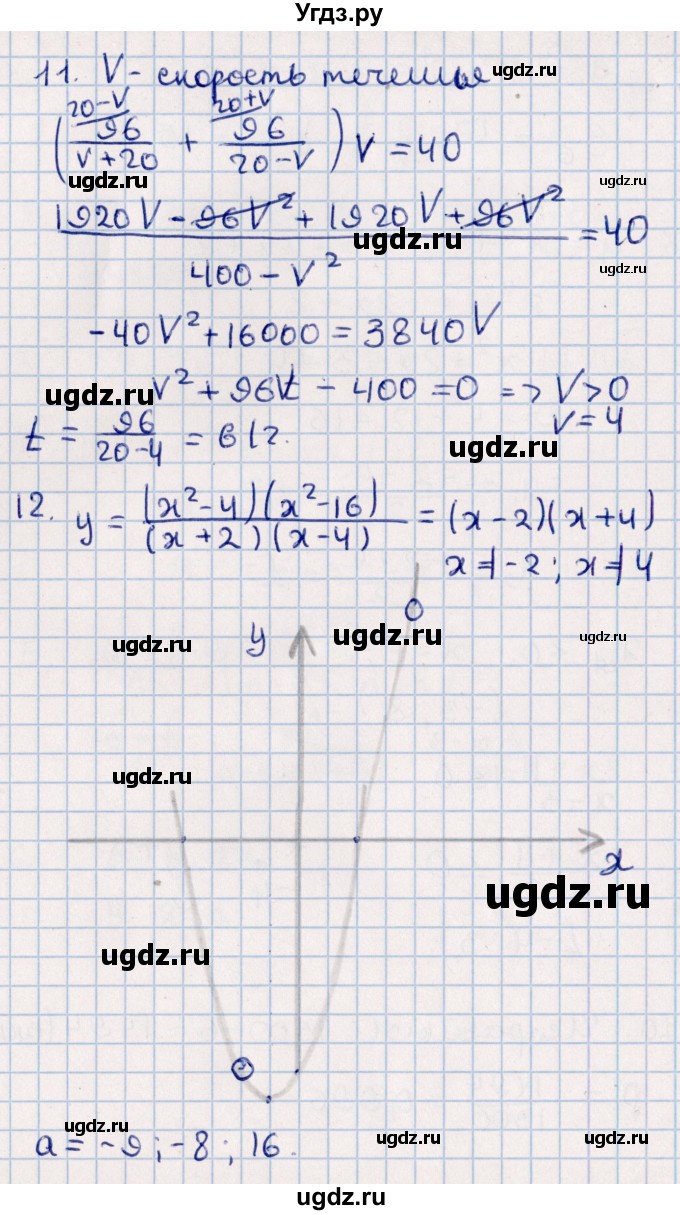 Угдз.ру
11. V - скорость течения
20-V 20+V
(96/(V+20) + 96/(20-V)) V = 40
ugdz.ru
(1920V - 96V² + 1920V + 96V²)/(400 - V²) = 40
ugdz.ru
ugdz.ru
-40V² + 16000 = 3840V
V² + 96V - 400 = 0 => V > 0
ugdz.ru
V = 4
t = 96/(20-4) = 6 (г.
ugdz.ru
12. y = (x²-4)(x²-16)/((x+2)(x-4)) = (x-2)(x+4)
x ≠ -2; x ≠ 4
y
ugdz.ru
ugdz.ru
ugdz.ru
ugdz.ru
x
ugdz.ru
ugdz.ru
ugdz.ru
ugdz.ru
ugdz.ru
a = -9; -8; 16.
ugdz.ru